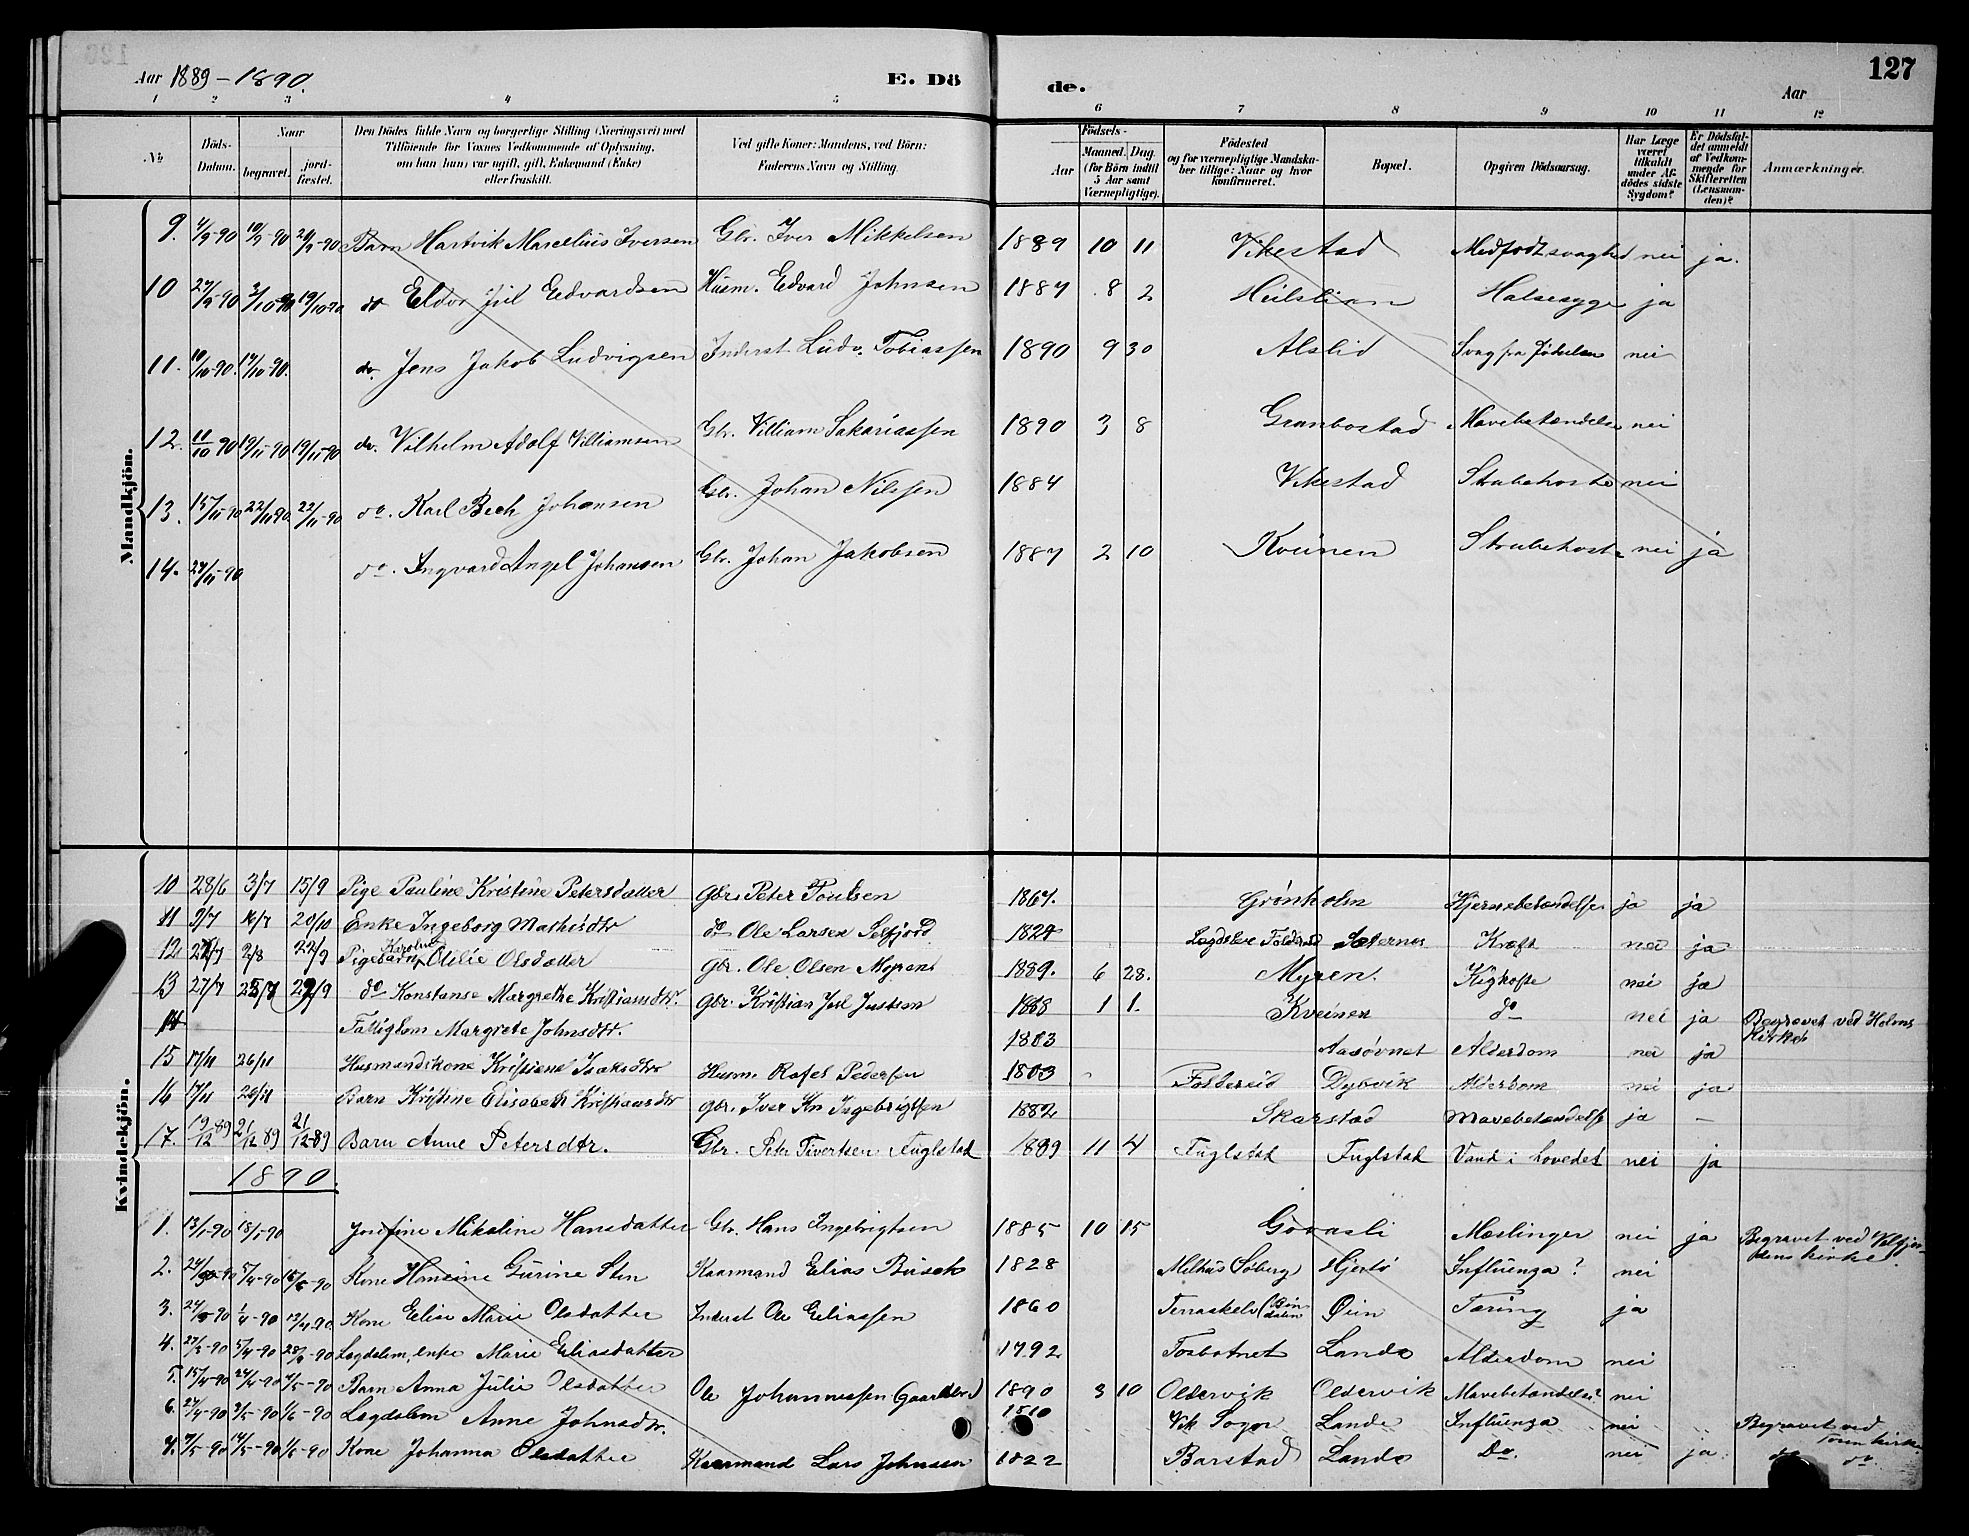 126
Aar 1889 - 1890.
E. Dö
de.
Aar
127
1 2 3 4 5 6 7 8 9 10 11 12
No. Döds-Datum. Naar begravet. jord-fæstet. Den Dödes fulde Navn og borgerlige Stilling (Næringsvei) med Tilföiende for Voxnes Vedkommende af Oplysning, om han (hun) var ugift, gift, Enkemand (Enke) eller fraskilt. Ved gifte Koner: Mandens, ved Börn: Faderens Navn og Stilling. Födsels- Aar Maaned. Dag. (for Börn indtil 5 Aar samt Værnepligtige). Födested og for værnepligtige Mandskaber tillige: Naar og hvor konfirmeret. Bopæl. Opgiven Dödsaarsag. Har Læge været tilkaldt under Afdödes sidste Sygdom? Er Dödsfaldet anmeldt af Vedkommende for Skifteretten (Lensmanden)? Anmærkninger.
Mandkjön.
9. 4/9-90 10/9-90 20/9-90 Barn Hartvik Marcelius Iversen Gbr. Iver Mikkelsen 1889 10 11 Vikestad Medfödt svaghed nei ja.
10 27/9-90 3/10-90 19/10-90. do Eldor Jul Edvardsen Husm. Edvard Johnsen 1887 8 2 Heilslian Halsesyge ja
11. 10/10-90. 17/10-90. do. Jens Jakob Ludvigsen Inderst Ludv. Tobiassen 1890 9 30 Alslid Svag fra Födselen nei
12. 11/10 90 19/11-90 19/11-90 do. Vilhelm Adolf Williamsen Gbr. Villiam Sakariassen 1890 3 8 Granbostad Mavebetændelse nei
13. 15/11-90 22/11-90. 22/11-90 do. Karl Bech Johansen Gbr. Johan Nilssen 1884 Vikestad Strubehoste nei
14. 27/11-90 do. Ingvard Angel Johansen Gbr. Johan Jakobsen 1887 2 10 Kveinen Strubehoste nei ja
Kvindekjön.
10 28/6 3/7 15/9 Pige Pauline Kristine Petersdatter Gbr. Peter Poulsen 1867. Grønholm Hjernebetændelse ja ja
11 9/7 16/7 20/10 Enke Ingeborg Mathisdtr do Ole Larsen Selfjord 1824 Lægdslem Foldereid Sæternes Kræft nei ja
12 22/7 2/8 22/9 Pigebarn Karoline Otilie Olsdatter Gbr. Ole Olsen Myren 1889. 6 28. Myren. Kighoste nei ja
13 27/7 28/7 29/9 do Konstanse Margrethe Kristiansdtr. Gbr. Kristian Jul Justsen 1888 1 1. Kveinen do nei ja Begravet ved Holms Kirke
14 Fattiglem Margrete Johnsdtr. 1803 Aasøvnet Alderdom nei ja
15 17/11 26/11 Husmandskone Kristiane Isaksdtr Husm. Rafel Pedersen 1803 Foldereid Dybvik Alderdom nei ja
16 17/11 26/11 Barn Kristine Elisabeth Kristiansdtr Gbr. Iver Kr. Ingebrigtsen 1882 Skarstad Mavebetændelse ja —
17. 19/12 89 21/12 89 21/12-89 Barn Anne Petersdtr. Gbr. Peter Sivertsen Fuglstad 1889 11 4 Fuglstad Fuglstad Vand i hovedet nei ja
1890.
1. 13/1-90 18/1-90 Josefine Mikaline Hansdatter Gbr. Hans Ingebrigtsen 1885 10 15 Gaaasli Mæslinger nei ja Begravet ved Velfjordens kirke.
2. 5/4-90 Kone Hansine Gurine Sten Kaarmand Elias Busch 1828 Melhus Søberg Hjertø Influenza? nei
3. 1/4-90 13/4-90. Kone Elise Marie Olsdatter Inderst Ole Eliassen 1860 Terraskelv (Bindalen) Øien Tæring ja
4. 27/3-90 5/4-90 Lægdslem, enke Marie Eliasdatter 1792 Fosbotnet Lande Alderdom nei
5. 15/4-90 24/4-90 4/5-90 Barn Anna Julie Olsdatter Ole Johannessen (Gaardbr.) 1890 3 10 Oldervik Oldervik Mavebetændelse? nei
6. 27/4-90 3/5-90 1/6-90 Lægdslem Anne Johnsdtr. 1810 Vik Sogn Lande Influenza nei Begravet ved Torn kirke
7. 7/5-90 14/5-90 1/6-90 Kone Johanna Olsdatter Kaarmand Lars Johnsen 1822 Barstad Lande Do. nei ja do do